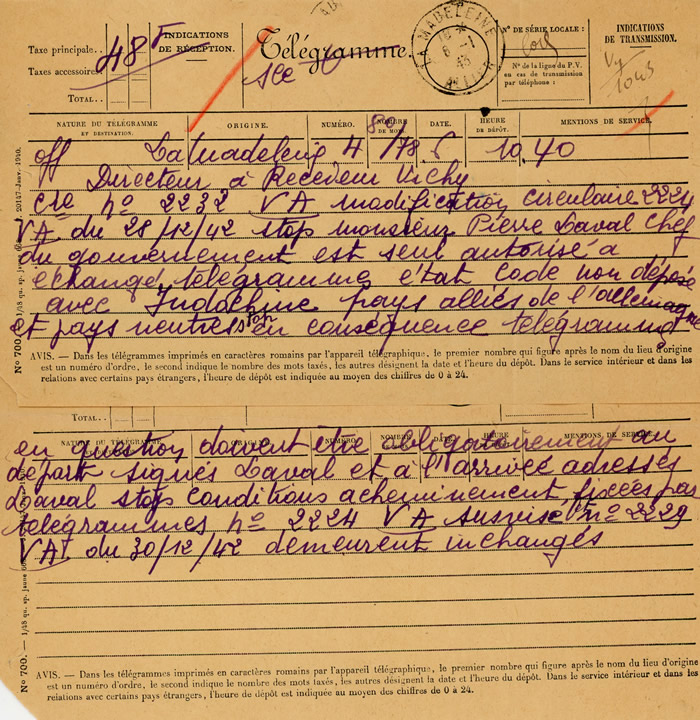 Taxe principale..
Taxes accessoires
TOTAL..
48F
INDICATIONS
DE RÉCEPTION.
Télégramme.
LA MADELEINE
6 -1
43
ALLIER
N° DE SÉRIE LOCALE :
N° de la ligne du P.V.
en cas de transmission
par téléphone :
INDICATIONS
DE TRANSMISSION.
Vy
1045
NATURE DU TÉLÉGRAMME
ET DESTINATION.
ORIGINE.
NUMÉRO.
NOMBRE
DE MOTS.
DATE.
HEURE
DE DÉPÔT.
MENTIONS DE SERVICE.
off La Madeleine 4 /78 5 10.40
Directeur à Receveur Vichy
cre no 2232 VA modification circulaire 2224
VA du 28/12/42 stop monsieur Pierre Laval chef
du gouvernement est seul autorisé a
échangé télégramme état code non déposé
avec Indochine pays alliés de l'allemagne
et pays neutres stop en conséquence télégramme
N° 700.
AVIS. — Dans les télégrammes imprimés en caractères romains par l'appareil télégraphique, le premier nombre qui figure après le nom du lieu d'origine
est un numéro d'ordre, le second indique le nombre des mots taxés, les autres désignent la date et l'heure du dépôt. Dans le service intérieur et dans les
relations avec certains pays étrangers, l'heure de dépôt est indiquée au moyen des chiffres de 0 à 24.
TOTAL..
NATURE DU TÉLÉGRAMME ORIGINE NUMÉRO NOMBRE DATE HEURE MENTIONS DE SERVICE.
en question doivent être obligatoirement au
départ signés Laval et à l'arrivée adressés
Laval stop conditions acheminement fixées par
télégrammes no 2224 VA susvisé no 2229
VAT du 30/12/42 demeurent inchangés
N° 700.
AVIS. — Dans les télégrammes imprimés en caractères romains par l'appareil télégraphique, le premier nombre qui figure après le nom du lieu d'origine
est un numéro d'ordre, le second indique le nombre des mots taxés, les autres désignent la date et l'heure du dépôt. Dans le service intérieur et dans les
relations avec certains pays étrangers, l'heure de dépôt est indiquée au moyen des chiffres de 0 à 24.